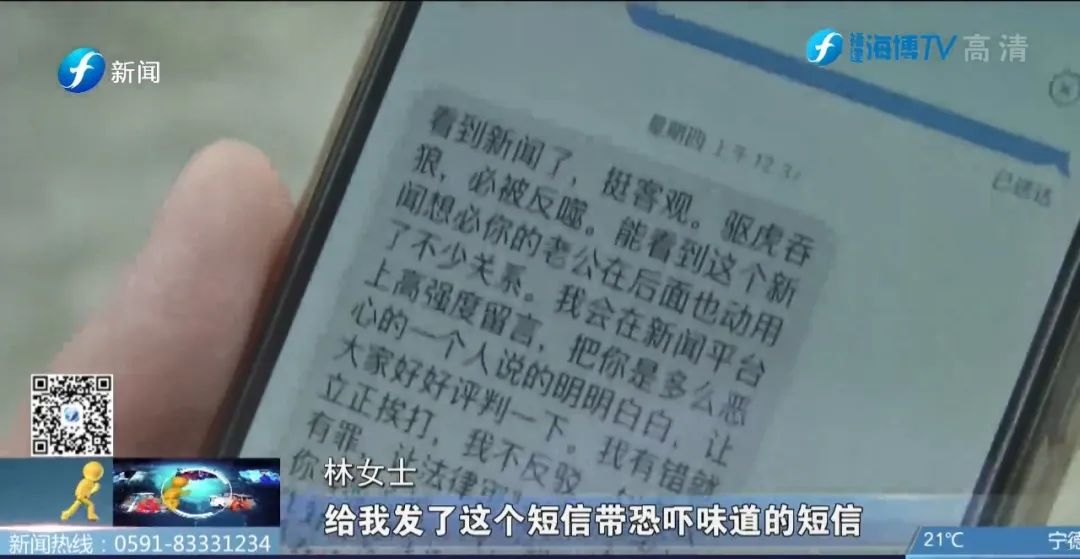 新闻
福建海博TV 高清
星期四 上午12:37
已送达
看到新闻了，挺客观。驱虎吞
狼，必被反噬。能看到这个新
闻想必你的老公在后面也动用
了不少关系。我会在新闻平台
上高强度留言，把你是多么恶
心的一个人说的明明白白，让
大家好好评判一下。我有错就
立正挨打，我不反驳
有罪，让法律
你
林女士
给我发了这个短信带恐吓味道的短信
新闻热线：0591-83331234
21℃
宁德